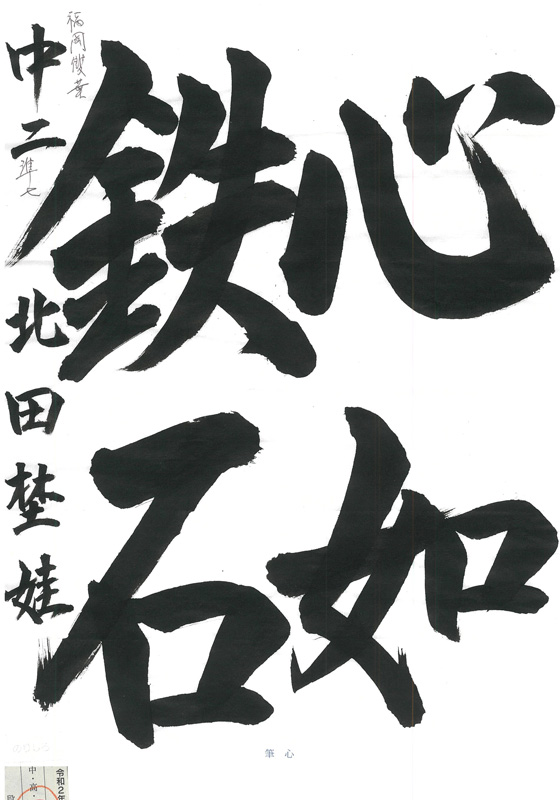 心如
鉄石
福岡俊葉
中二 準七 北田埜娃
心 筆
令和2年
中・高・